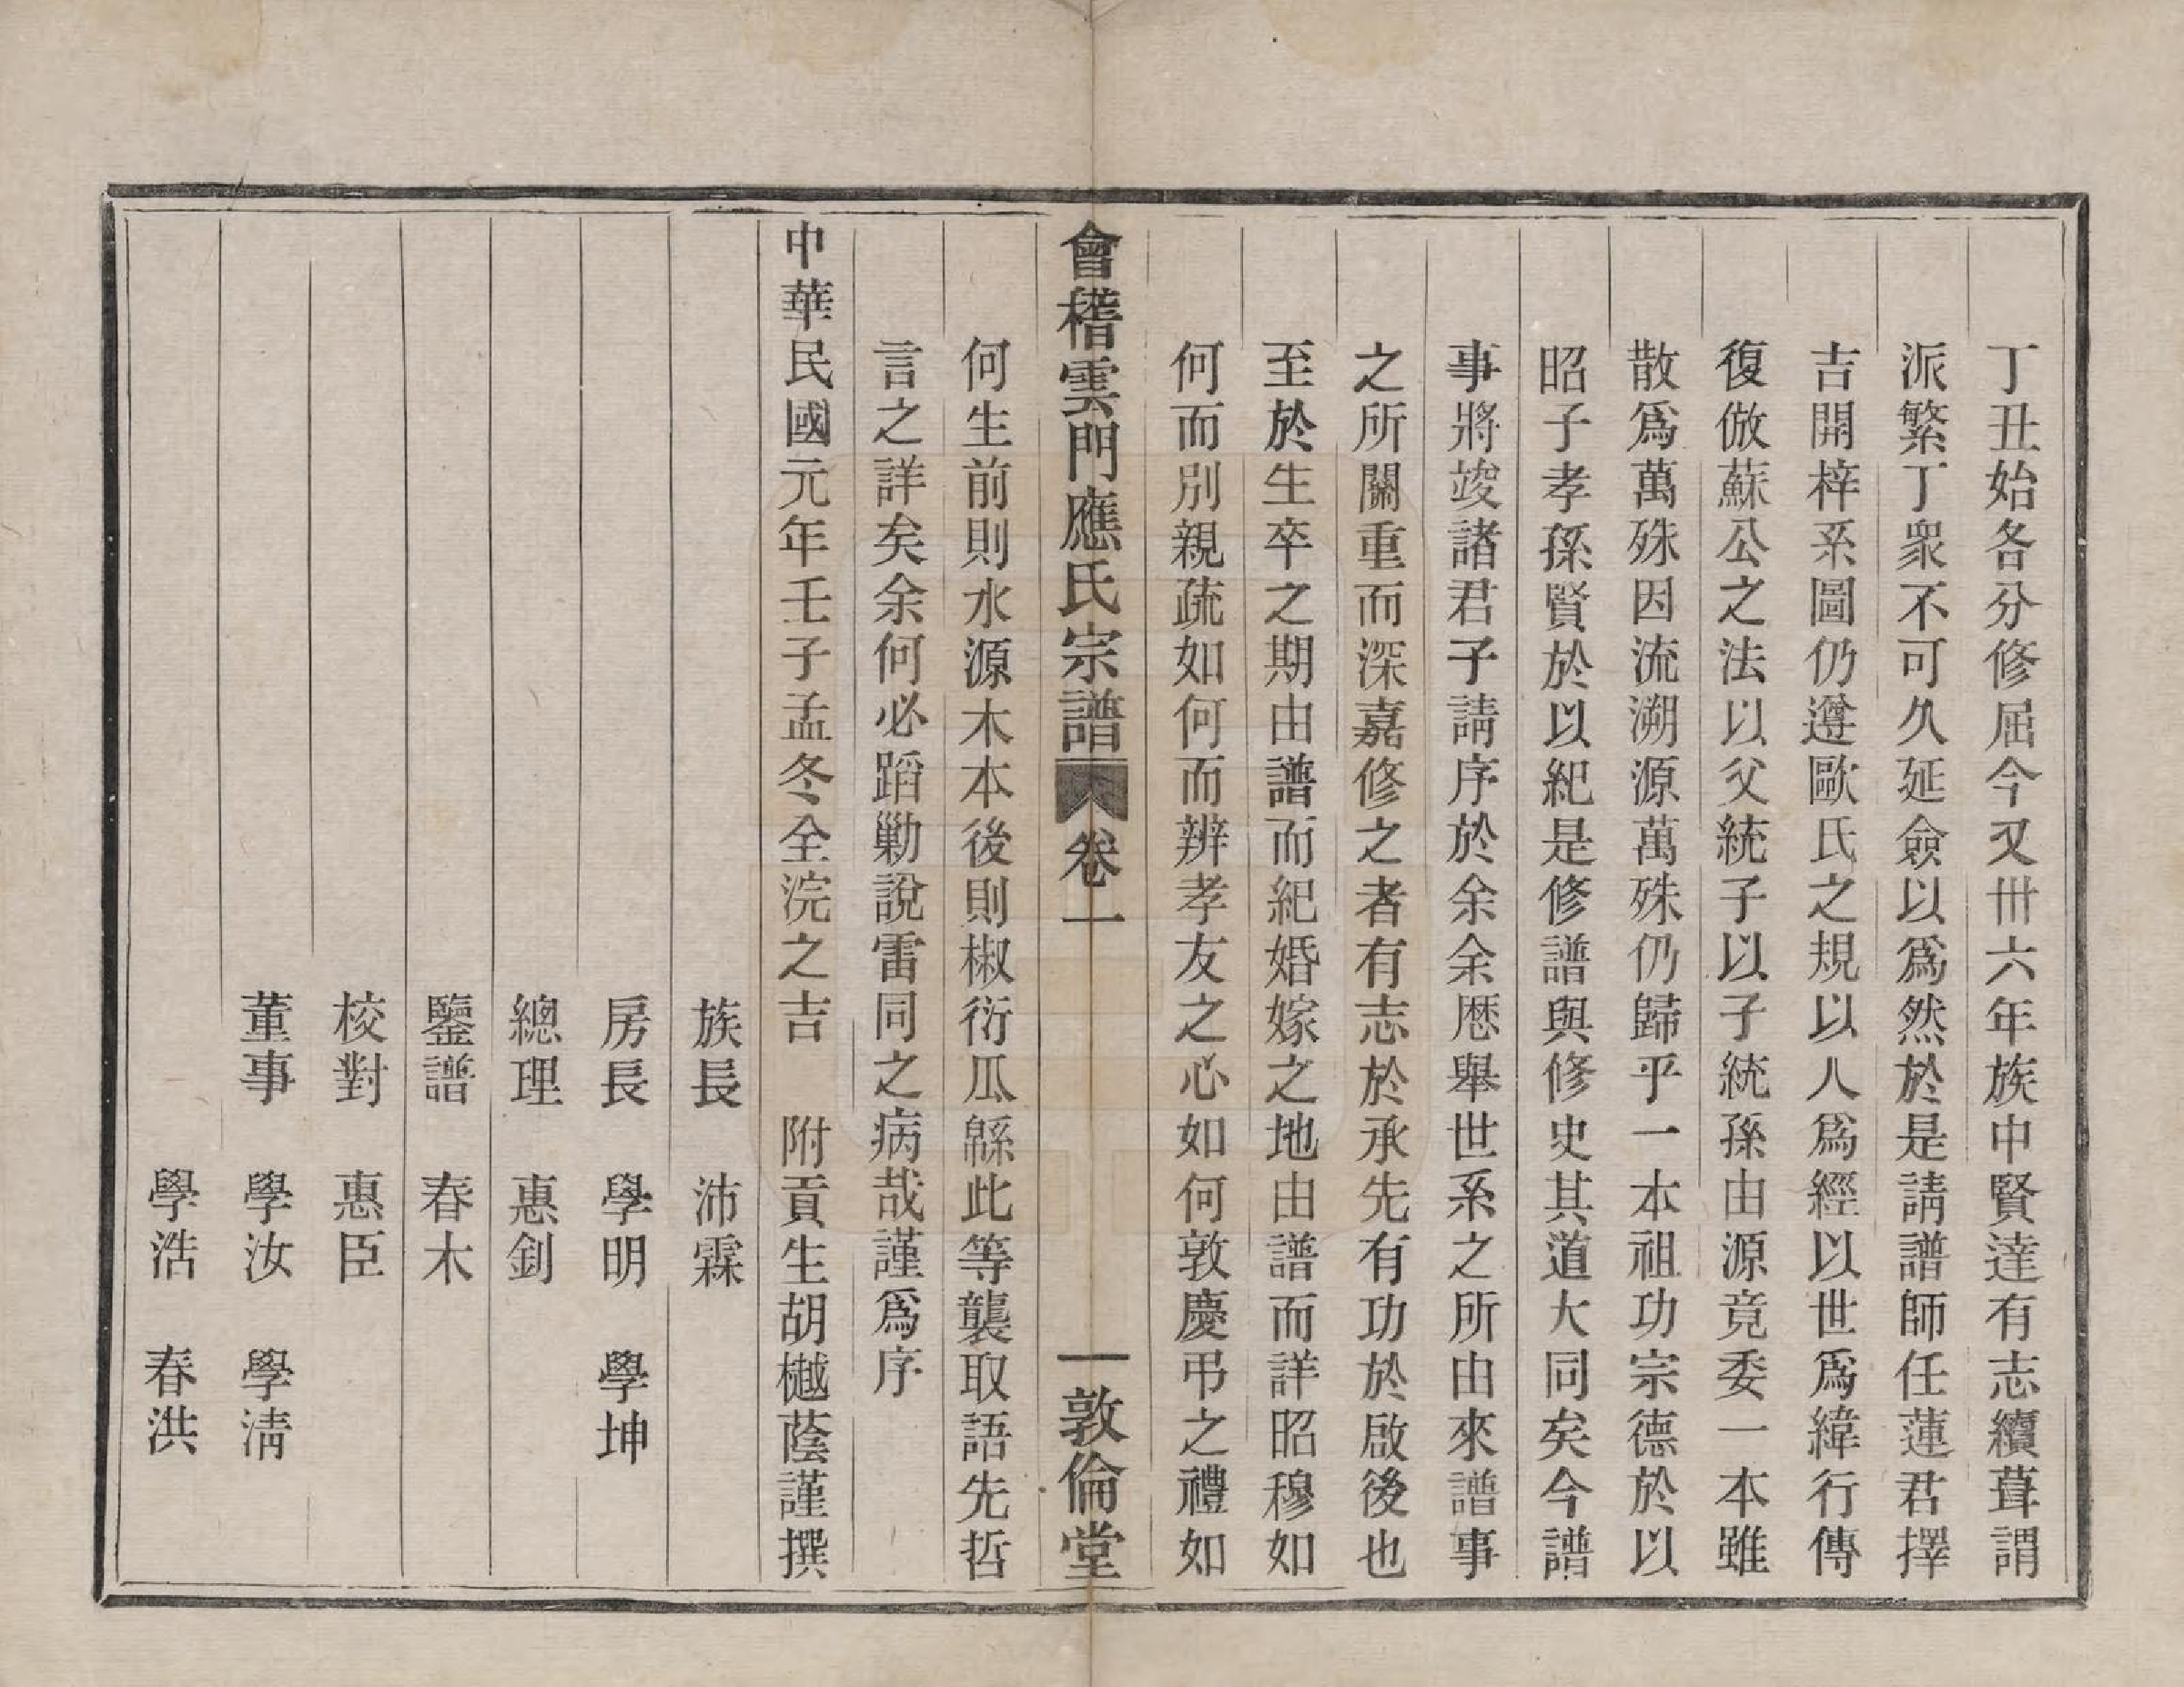 丁丑始各分修屈今又卅六年族中賢達有志續葺謂
派繁丁衆不可久延僉以爲然於是請譜師任蓮君擇
吉開梓系圖仍遵歐氏之規以人爲經以世爲緯行傳
復倣蘇公之法以父統子以子統孫由源竟委一本雖
散爲萬殊因流溯源萬殊仍歸乎一本祖功宗德於以
昭子孝孫賢於以紀是修譜與修史其道大同矣今譜
事將竣諸君子請序於余余歴舉世系之所由來譜事
之所關重而深嘉修之者有志於承先有功於啟後也
至於生卒之期由譜而紀婚嫁之地由譜而詳昭穆如
何而別親疏如何而辨孝友之心如何敦慶弔之禮如
會稽雲門應氏宗譜 卷一 一敦倫堂
何生前則水源木本後則椒衍瓜緜此等襲取語先哲
言之詳矣余何必蹈勦說雷同之病哉謹爲序
中華民國元年壬子孟冬全浣之吉 附貢生胡樾蔭謹撰
族長 沛霖
房長 學明 學坤
總理 惠釗
鑒譜 春木
校對 惠臣
董事 學汝 學淸
學浩 春洪